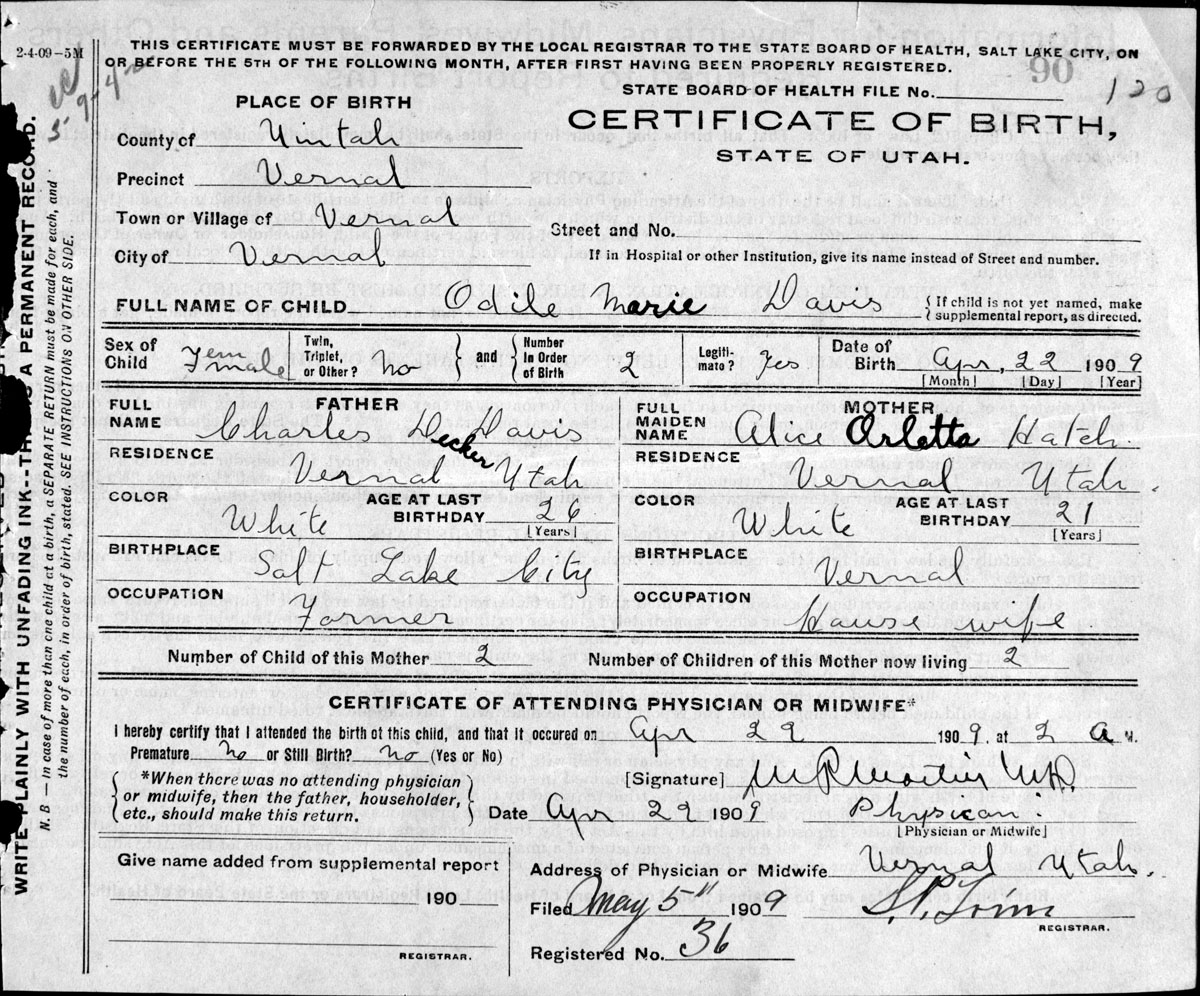 2-4-09-5M
THIS CERTIFICATE MUST BE FORWARDED BY THE LOCAL REGISTRAR TO THE STATE BOARD OF HEALTH, SALT LAKE CITY, ON
OR BEFORE THE 5TH OF THE FOLLOWING MONTH, AFTER FIRST HAVING BEEN PROPERLY REGISTERED.
90
STATE BOARD OF HEALTH FILE No. 120
PLACE OF BIRTH
CERTIFICATE OF BIRTH,
STATE OF UTAH.
County of Uintah
Precinct Vernal
Town or Village of Vernal
Street and No.
City of Vernal
If in Hospital or other Institution, give its name instead of Street and number.
FULL NAME OF CHILD Odile Marie Davis { If child is not yet named, make supplemental report, as directed.
Sex of Child Fem male Twin, Triplet, or Other? no } and { Number In Order of Birth 2 Legiti- mate? Yes Date of Birth Apr, 22 1909
[Month] [Day] [Year]
FATHER
FULL NAME Charles Decker Davis
RESIDENCE
Vernal Utah
COLOR White AGE AT LAST BIRTHDAY 26
[Years]
BIRTHPLACE
Salt Lake City
OCCUPATION
Farmer
MOTHER
FULL MAIDEN NAME Alice Orletta Hatch
RESIDENCE
Vernal Utah.
COLOR White AGE AT LAST BIRTHDAY 21
[Years]
BIRTHPLACE
Vernal
OCCUPATION
House wife
Number of Child of this Mother 2 Number of Children of this Mother now living 2
CERTIFICATE OF ATTENDING PHYSICIAN OR MIDWIFE*
I hereby certify that I attended the birth of this child, and that it occured on Apr 22 1909, at 2 a M.
Premature no or Still Birth? no (Yes or No)
*When there was no attending physician
or midwife, then the father, householder,
etc., should make this return.
[Signature] M.D.
Date Apr 22 1909 Physican.
[Physician or Midwife]
Give name added from supplemental report
190
REGISTRAR.
Address of Physician or Midwife Vernal Utah.
Filed May 5th 1909
REGISTRAR.
Registered No. 36
WRITE PLAINLY WITH UNFADING INK--THIS IS A PERMANENT RECORD.
N. B — In case of more then one child at a birth, a SEPARATE RETURN must be made for each, and
the number of each, in order of birth, stated. SEE INSTRUCTIONS ON OTHER SIDE.